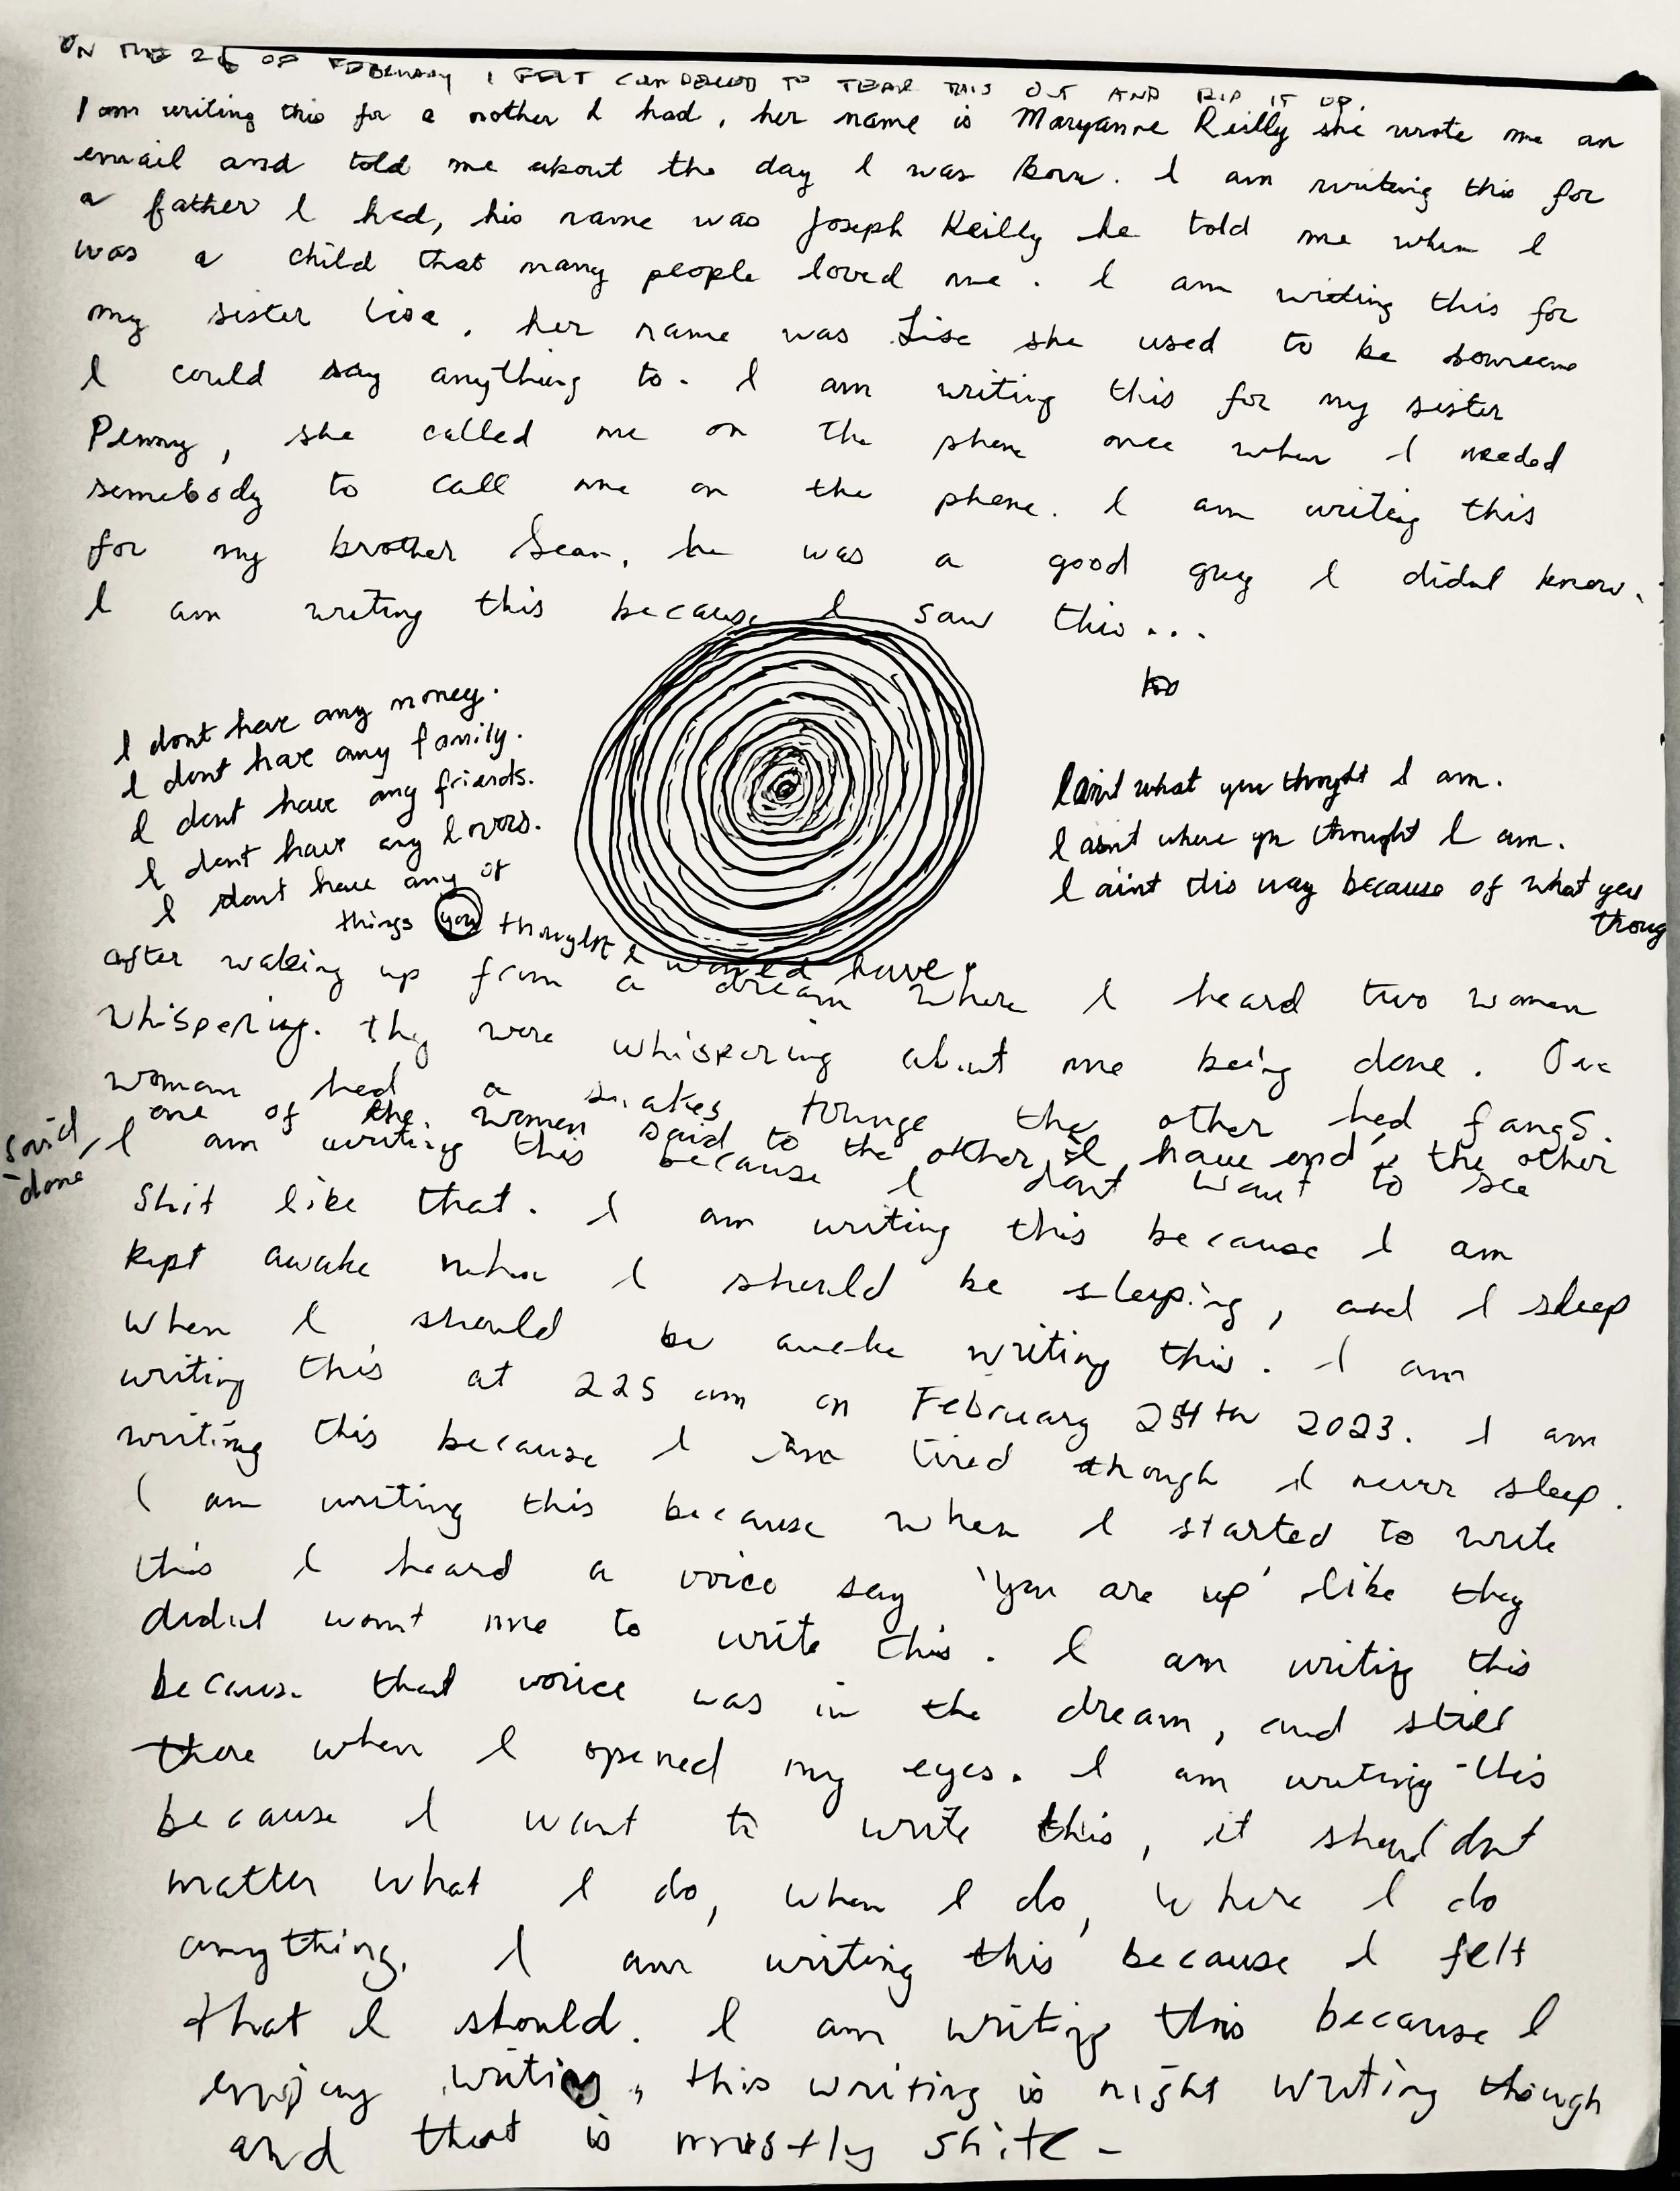 ON THE 26 OF FEBRUARY I FELT COMPELLED TO TEAR THIS OUT AND RIP IT UP.
I am writing this for a mother I had, her name is Maryanne Reilly she wrote me an
email and told me about the day I was Born. I am writing this for
a father I had, his name was Joseph Reilly he told me when I
was a child that many people loved me. I am writing this for
my sister Lise, her name was Lise she used to be someone
I could say anything to. I am writing this for my sister
Penny, she called me on the phone once when I needed
somebody to call me on the phone. I am writing this
for my brother Sean, he was a good guy I didnt know.
I am writing this because I saw this...
I dont have any money.
I dont have any family.
I dont have any friends.
I dont have any lovers.
I dont have any of
things you thought I would have.
I aint what you thought I am.
I aint where you thought I am.
I aint this way because of what you
thoug
after waking up from a dream where I heard two women
whispering. they were whispering about me being done. One
woman had a snakes tounge the other had fangs.
one of the women said to the other, I have end, the other
said
done
I am writing this because I dont want to see
Shit like that. I am writing this because I am
kept awake when I should be sleeping, and I sleep
when I should be awake writing this. I am
writing this at 225 am on February 25th 2023. I am
writing this because I am tired though I never sleep.
I am writing this because when I started to write
this I heard a voice say 'you are up' like they
didnt want me to write this. I am writing this
because that voice was in the dream, and still
there when I opened my eyes. I am writing this
because I want to write this, it shouldnt
matter what I do, when I do, where I do
anything. I am writing this because I felt
that I should. I am writing this because I
enjoy writing, this writing is night writing though
and that is mostly shite -